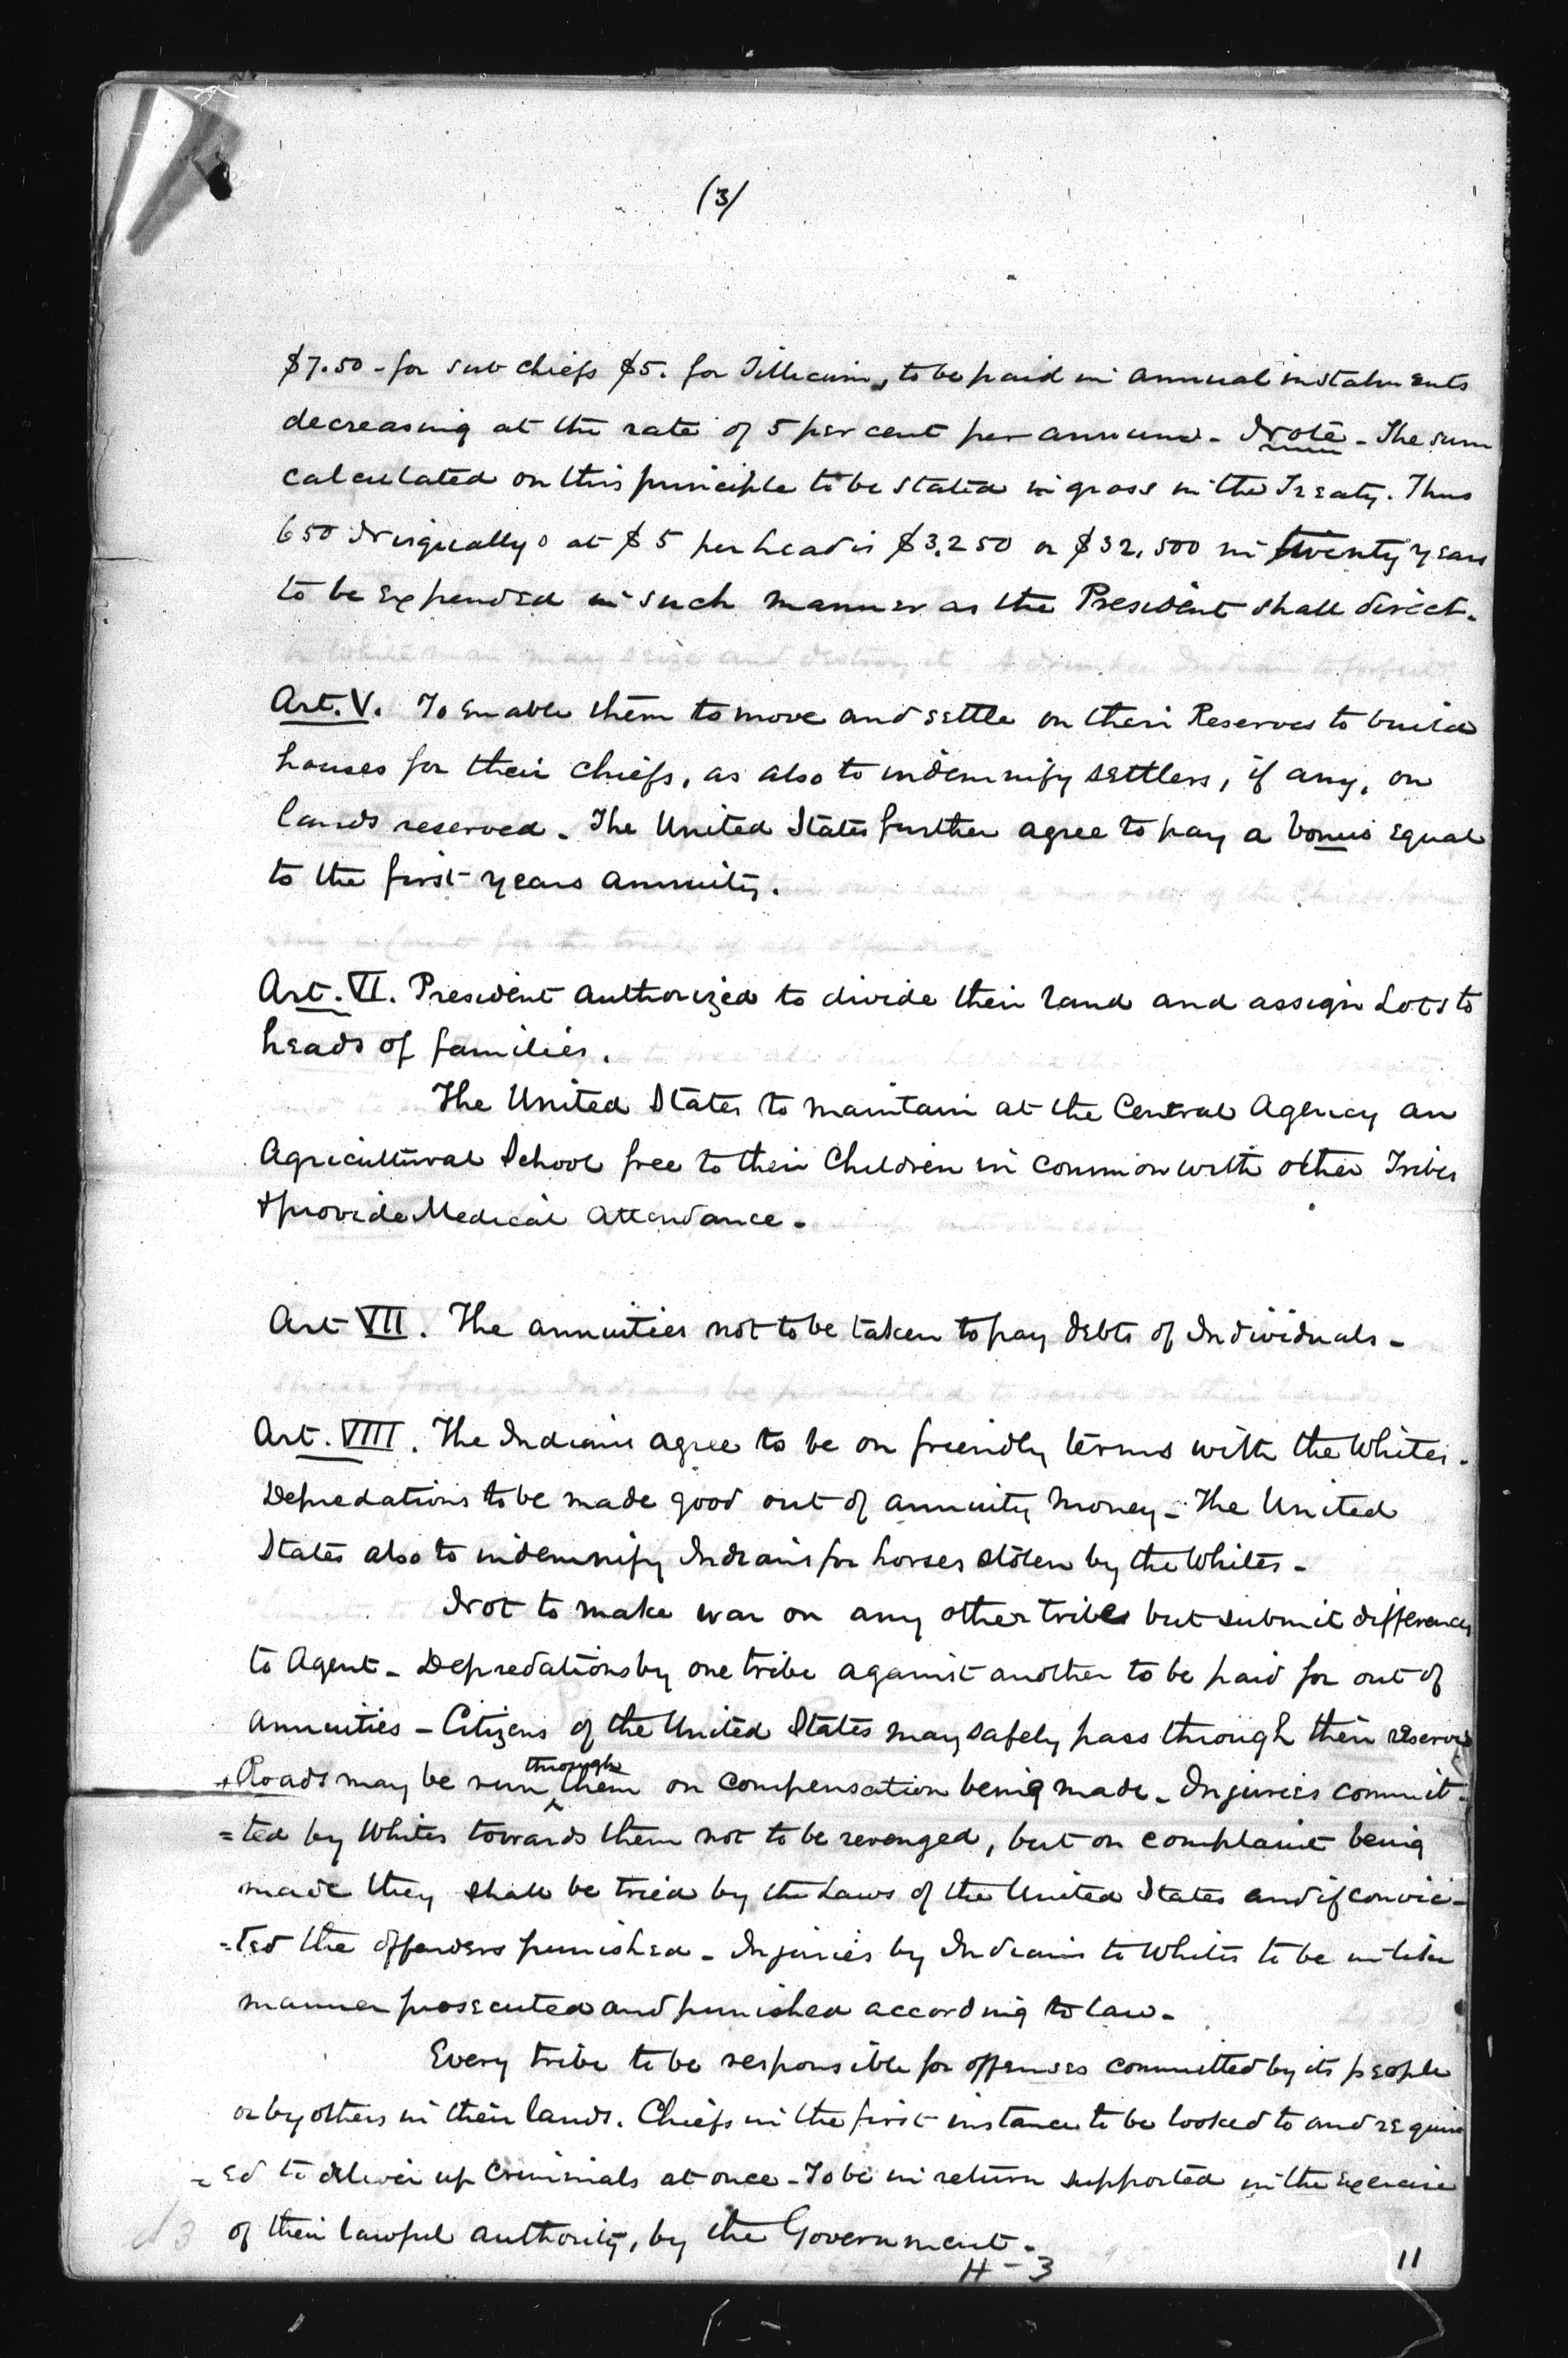 (3/
$7.50 - for sub chiefs $5. for Tillicum, to be paid in annual instalments
decreasing at the rate of 5 per cent per annum - Note - The sum
calculated on this principle to be stated in gross in the Treaty. Thus
650 Nisqually's at $5 per head is $3,250 or $32,500 in twenty years
to be expended in such manner as the President shall direct.
Art. V. To enable them to move and settle on their Reserves to build
houses for their chiefs, as also to indemnify settlers, if any, on
lands reserved - The United States further agree to pay a bonus equal
to the first years annuity.
Art. VI. President authorized to divide their land and assign Lots to
heads of families.
The United States to maintain at the Central Agency an
Agricultural School free to their Children in common with other Tribes
& provide Medical Attendance -
Art VII. The annuities not to be taken to pay debts of Individuals -
Art. VIII. The Indians agree to be on friendly terms with the Whites.
Depredations to be made good out of annuity money - The United
States also to indemnify Indians for horses stolen by the Whites -
Not to make war on any other tribes but submit differences
to Agent - Depredations by one tribe against another to be paid for out of
annuities - Citizens of the United States may safely pass through their reserves
+ Roads may be run through them on compensation being made - Injuries commit-
=ted by Whites towards them not to be revenged, but on complaint being
made they shall be tried by the Laws of the United States and if convic-
=ted the offenders punished - Injuries by Indians to Whites to be in like
manner prosecuted and punished according to law -
Every tribe to be responsible for offenses committed by its people
or by others in their lands. Chiefs in the first instance to be looked to and requir
=ed to deliver up Criminals at once - To be in return supported in the exercise
of their lawful authority, by the Government -
H-3
11